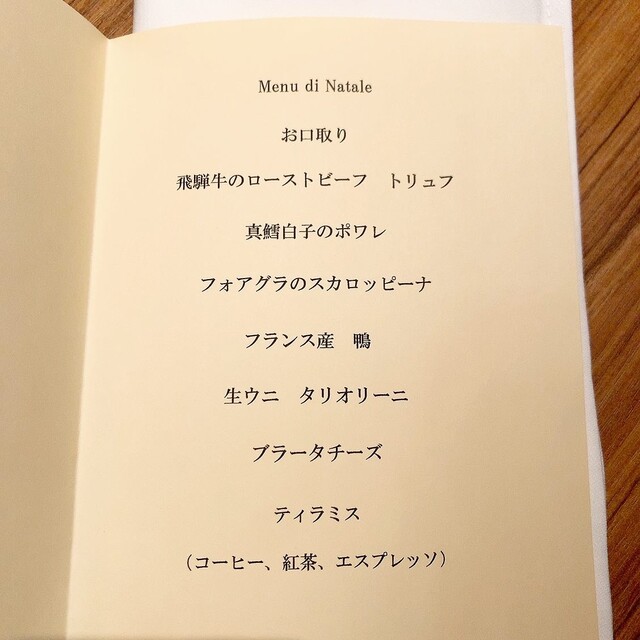 Menu di Natale
お口取り
飛騨牛のローストビーフ　トリュフ
真鱈白子のポワレ
フォアグラのスカロッピーナ
フランス産　鴨
生ウニ　タリオリーニ
ブラータチーズ
ティラミス
（コーヒー、紅茶、エスプレッソ）